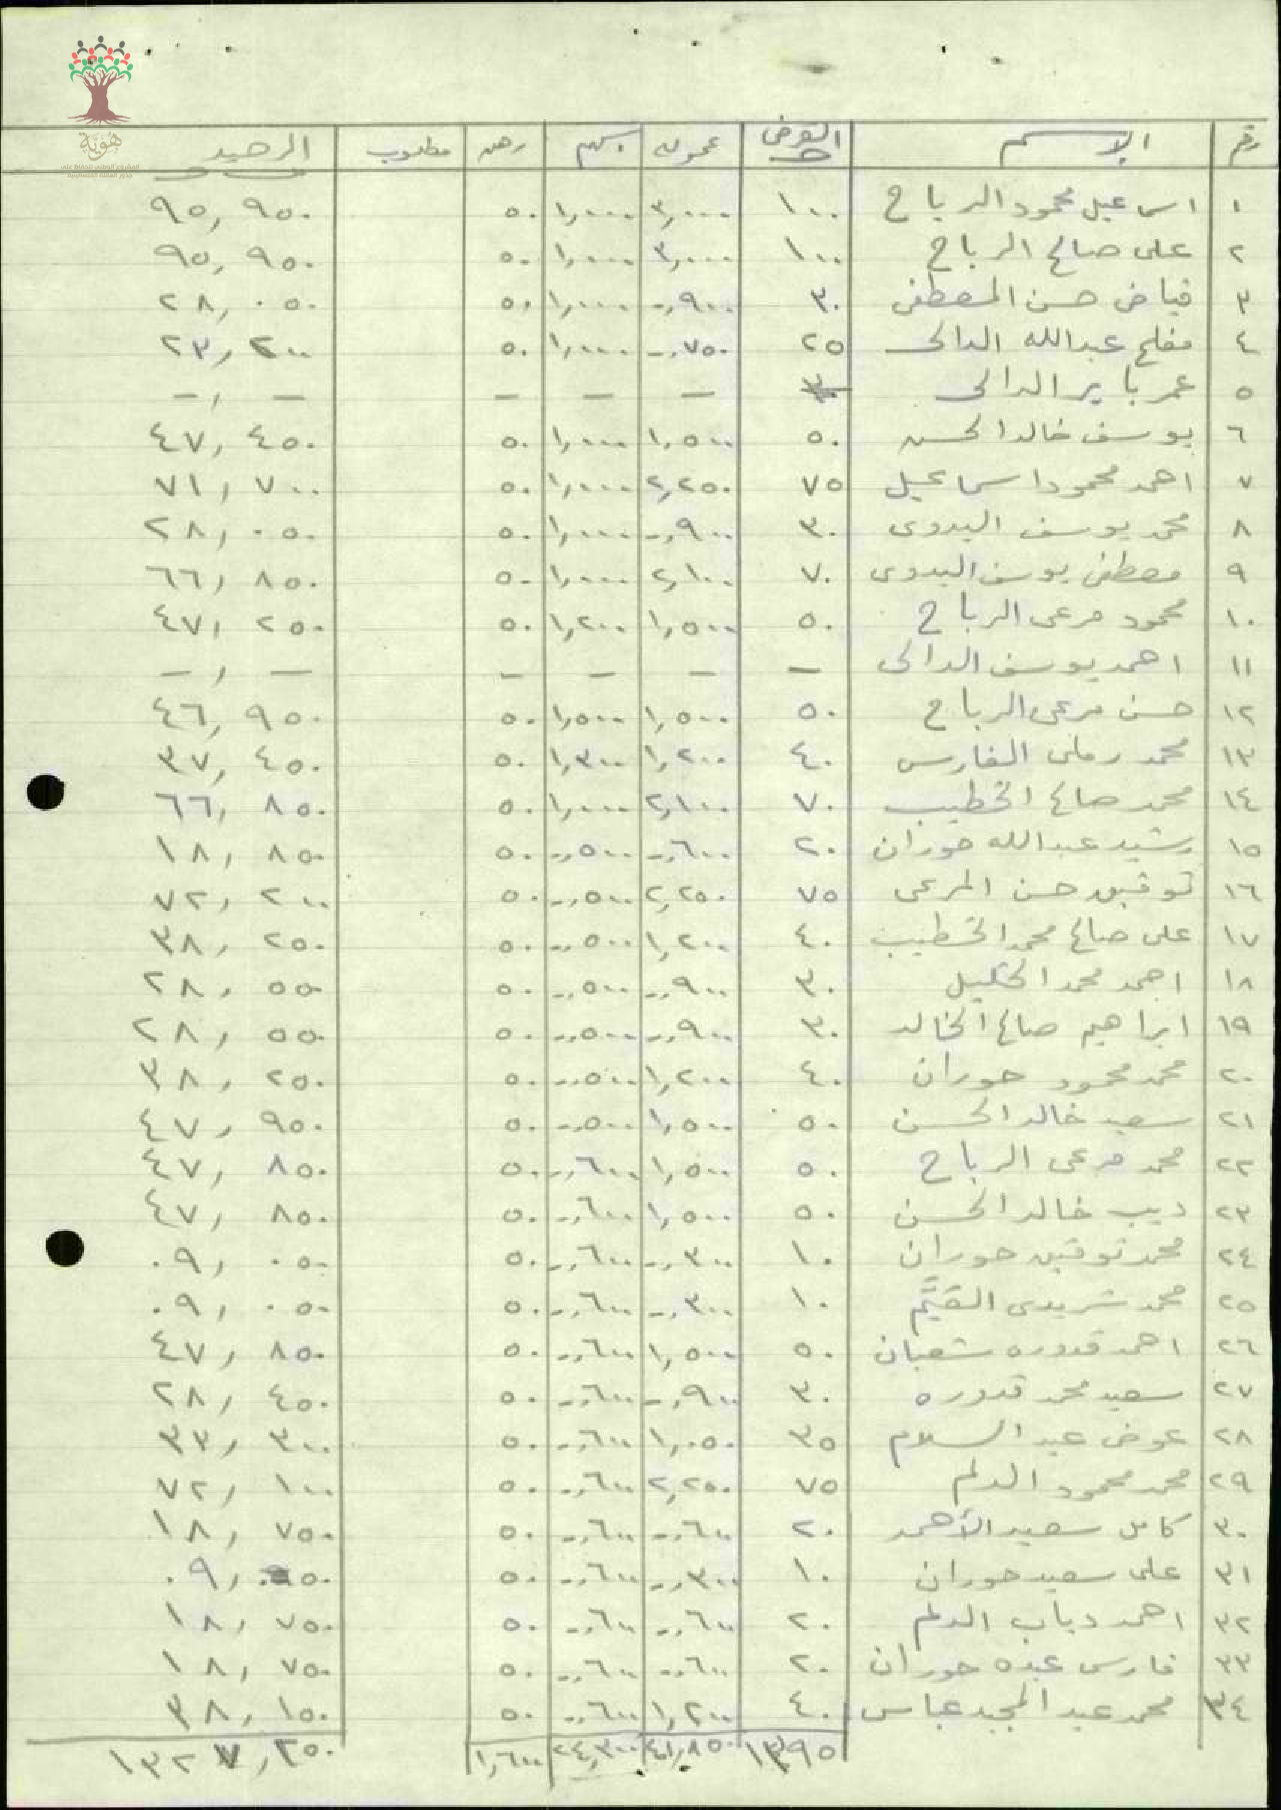 هوية
رقم الاسم القرض عمولة بسهم رهن مطلوب الرصيد
١ اسماعيل محمود الرباح ١٠٠ ٣,٠٠٠ ١,٠٠٠ ٥٠ ٩٥,٩٥٠
٢ على صالح الرباح ١٠٠ ٣,٠٠٠ ١,٠٠٠ ٥٠ ٩٥,٩٥٠
٣ فياض حسن المصطفى ٣٠ -,٩٠٠ ١,٠٠٠ ٥٠ ٢٨,٠٥٠
٤ مفلح عبدالله الدالى ٢٥ -,٧٥٠ ١,٠٠٠ ٥٠ ٢٣,٢٠٠
٥ عمر باير الدالى ٣٠ - - - -,-
٦ يوسف خالد الحسن ٥٠ ١,٥٠٠ ١,٠٠٠ ٥٠ ٤٧,٤٥٠
٧ احمد محمود اسماعيل ٧٥ ٢,٢٥٠ ١,٠٠٠ ٥٠ ٧١,٧٠٠
٨ محمد يوسف البدوى ٣٠ -,٩٠٠ ١,٠٠٠ ٥٠ ٢٨,٠٥٠
٩ مصطفى يوسف البدوى ٧٠ ٢,١٠٠ ١,٠٠٠ ٥٠ ٦٦,٨٥٠
١٠ محمود مرعى الرباح ٥٠ ١,٥٠٠ ١,٢٠٠ ٥٠ ٤٧,٢٥٠
١١ احمد يوسف الدالى - - - - -,-
١٢ حسن مرعى الرباح ٥٠ ١,٥٠٠ ١,٥٠٠ ٥٠ ٤٦,٩٥٠
١٣ محمد رملى الفارس ٤٠ ١,٢٠٠ ١,٣٠٠ ٥٠ ٣٧,٤٥٠
١٤ محمد صالح الخطيب ٧٠ ٢,١٠٠ ١,٠٠٠ ٥٠ ٦٦,٨٥٠
١٥ رشيد عبدالله حوران ٢٠ -,٦٠٠ -,٥٠٠ ٥٠ ١٨,٨٥٠
١٦ توفيق حسن المرعى ٧٥ ٢,٢٥٠ -,٥٠٠ ٥٠ ٧٢,٢٠٠
١٧ على صالح محمد الخطيب ٤٠ ١,٢٠٠ -,٥٠٠ ٥٠ ٣٨,٢٥٠
١٨ احمد محمد الخليل ٣٠ -,٩٠٠ -,٥٠٠ ٥٠ ٢٨,٥٥٠
١٩ ابراهيم صالح الخالد ٣٠ -,٩٠٠ -,٥٠٠ ٥٠ ٢٨,٥٥٠
٢٠ محمد محمود حوران ٤٠ ١,٢٠٠ -,٥٠٠ ٥٠ ٣٨,٢٥٠
٢١ سعيد خالد الحسن ٥٠ ١,٥٠٠ -,٥٠٠ ٥٠ ٤٧,٩٥٠
٢٢ محمد مرعى الرباح ٥٠ ١,٥٠٠ -,٦٠٠ ٥٠ ٤٧,٨٥٠
٢٣ ديب خالد الحسن ٥٠ ١,٥٠٠ -,٦٠٠ ٥٠ ٤٧,٨٥٠
٢٤ محمد توفيق حوران ١٠ -,٣٠٠ -,٦٠٠ ٥٠ ٠٩,٠٥٠
٢٥ محمد شريدى القيّم ١٠ -,٣٠٠ -,٦٠٠ ٥٠ ٠٩,٠٥٠
٢٦ احمد قدوره شعبان ٥٠ ١,٥٠٠ -,٦٠٠ ٥٠ ٤٧,٨٥٠
٢٧ سعيد محمد قدوره ٣٠ -,٩٠٠ -,٦٠٠ ٥٠ ٢٨,٤٥٠
٢٨ عوض عبد السلام ٣٥ ١,٠٥٠ -,٦٠٠ ٥٠ ٣٣,٣٠٠
٢٩ محمد محمود الدلم ٧٥ ٢,٢٥٠ -,٦٠٠ ٥٠ ٧٢,١٠٠
٣٠ كامل سعيد الأحمد ٢٠ -,٦٠٠ -,٦٠٠ ٥٠ ١٨,٧٥٠
٣١ على سعيد حوران ١٠ -,٣٠٠ -,٦٠٠ ٥٠ ٠٩,٠٥٠
٣٢ احمد دياب الدلم ٢٠ -,٦٠٠ -,٦٠٠ ٥٠ ١٨,٧٥٠
٣٣ فارس عبده حوران ٢٠ -,٦٠٠ -,٦٠٠ ٥٠ ١٨,٧٥٠
٣٤ محمد عبد المجيد عباس ٤٠ ١,٢٠٠ -,٦٠٠ ٥٠ ٣٨,١٥٠
١٣٩٥ ٤١,٨٥٠ ٢٤,٣٠٠ ١,٦٠٠ ١٣٢٧,٢٥٠